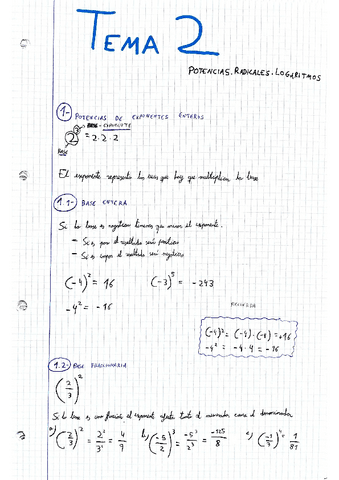 TEMA 2
POTENCIAS. RADICALES. LOGARITMOS
1- POTENCIAS DE EXPONENTES ENTEROS
BASE - EXPONENTE
2³ = 2·2·2
BASE
El exponente representa las veces que hay que multiplicar la base
1.1- BASE ENTERA
Si la base es negativa tenemos que mirar el exponente.
- Si es par el resultado será positivo
- Si es impar el resultado será negativo
(-4)² = 16 (-3)⁵ = -243
-4² = -16
RECUERDA
(-4)² = (-4)·(-4) = +16
-4² = -4·4 = -16
1.2- BASE FRACCIONARIA
(2/3)²
Si la base es una fracción el exponente afecta tanto al numerador como al denominador
a) (2/3)² = 2²/3² = 4/9 b) (-5/2)³ = -5³/2³ = -125/8 c) (-1/3)⁴ = 1/81